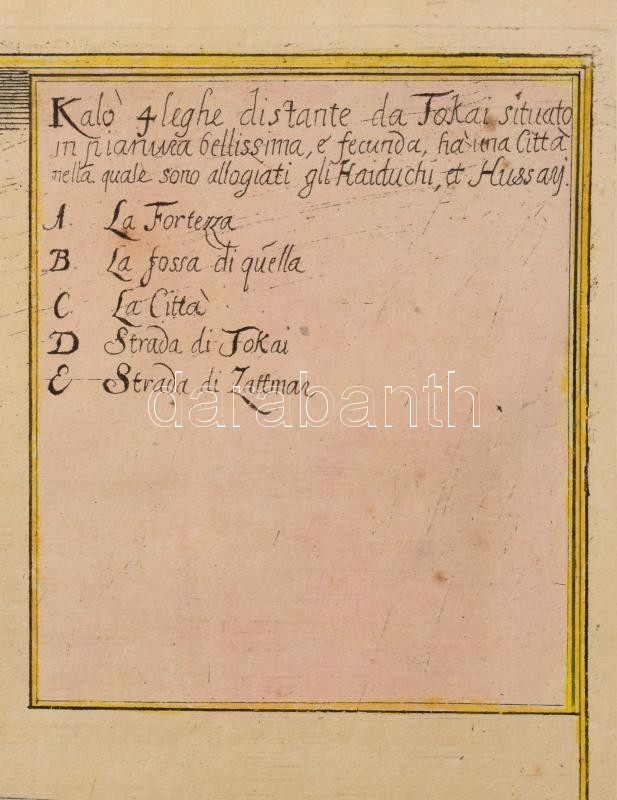 Kalò 4 leghe distante da Tokai situato
in pianura bellissima, e fecunda, hà una Città
nella quale sono allogiati gli Haiduchi, et Hussarj.
A. La Fortezza
B. La fossa di quella
C. La Città
D Strada di Tokai
E Strada di Zattmar,
darabanth